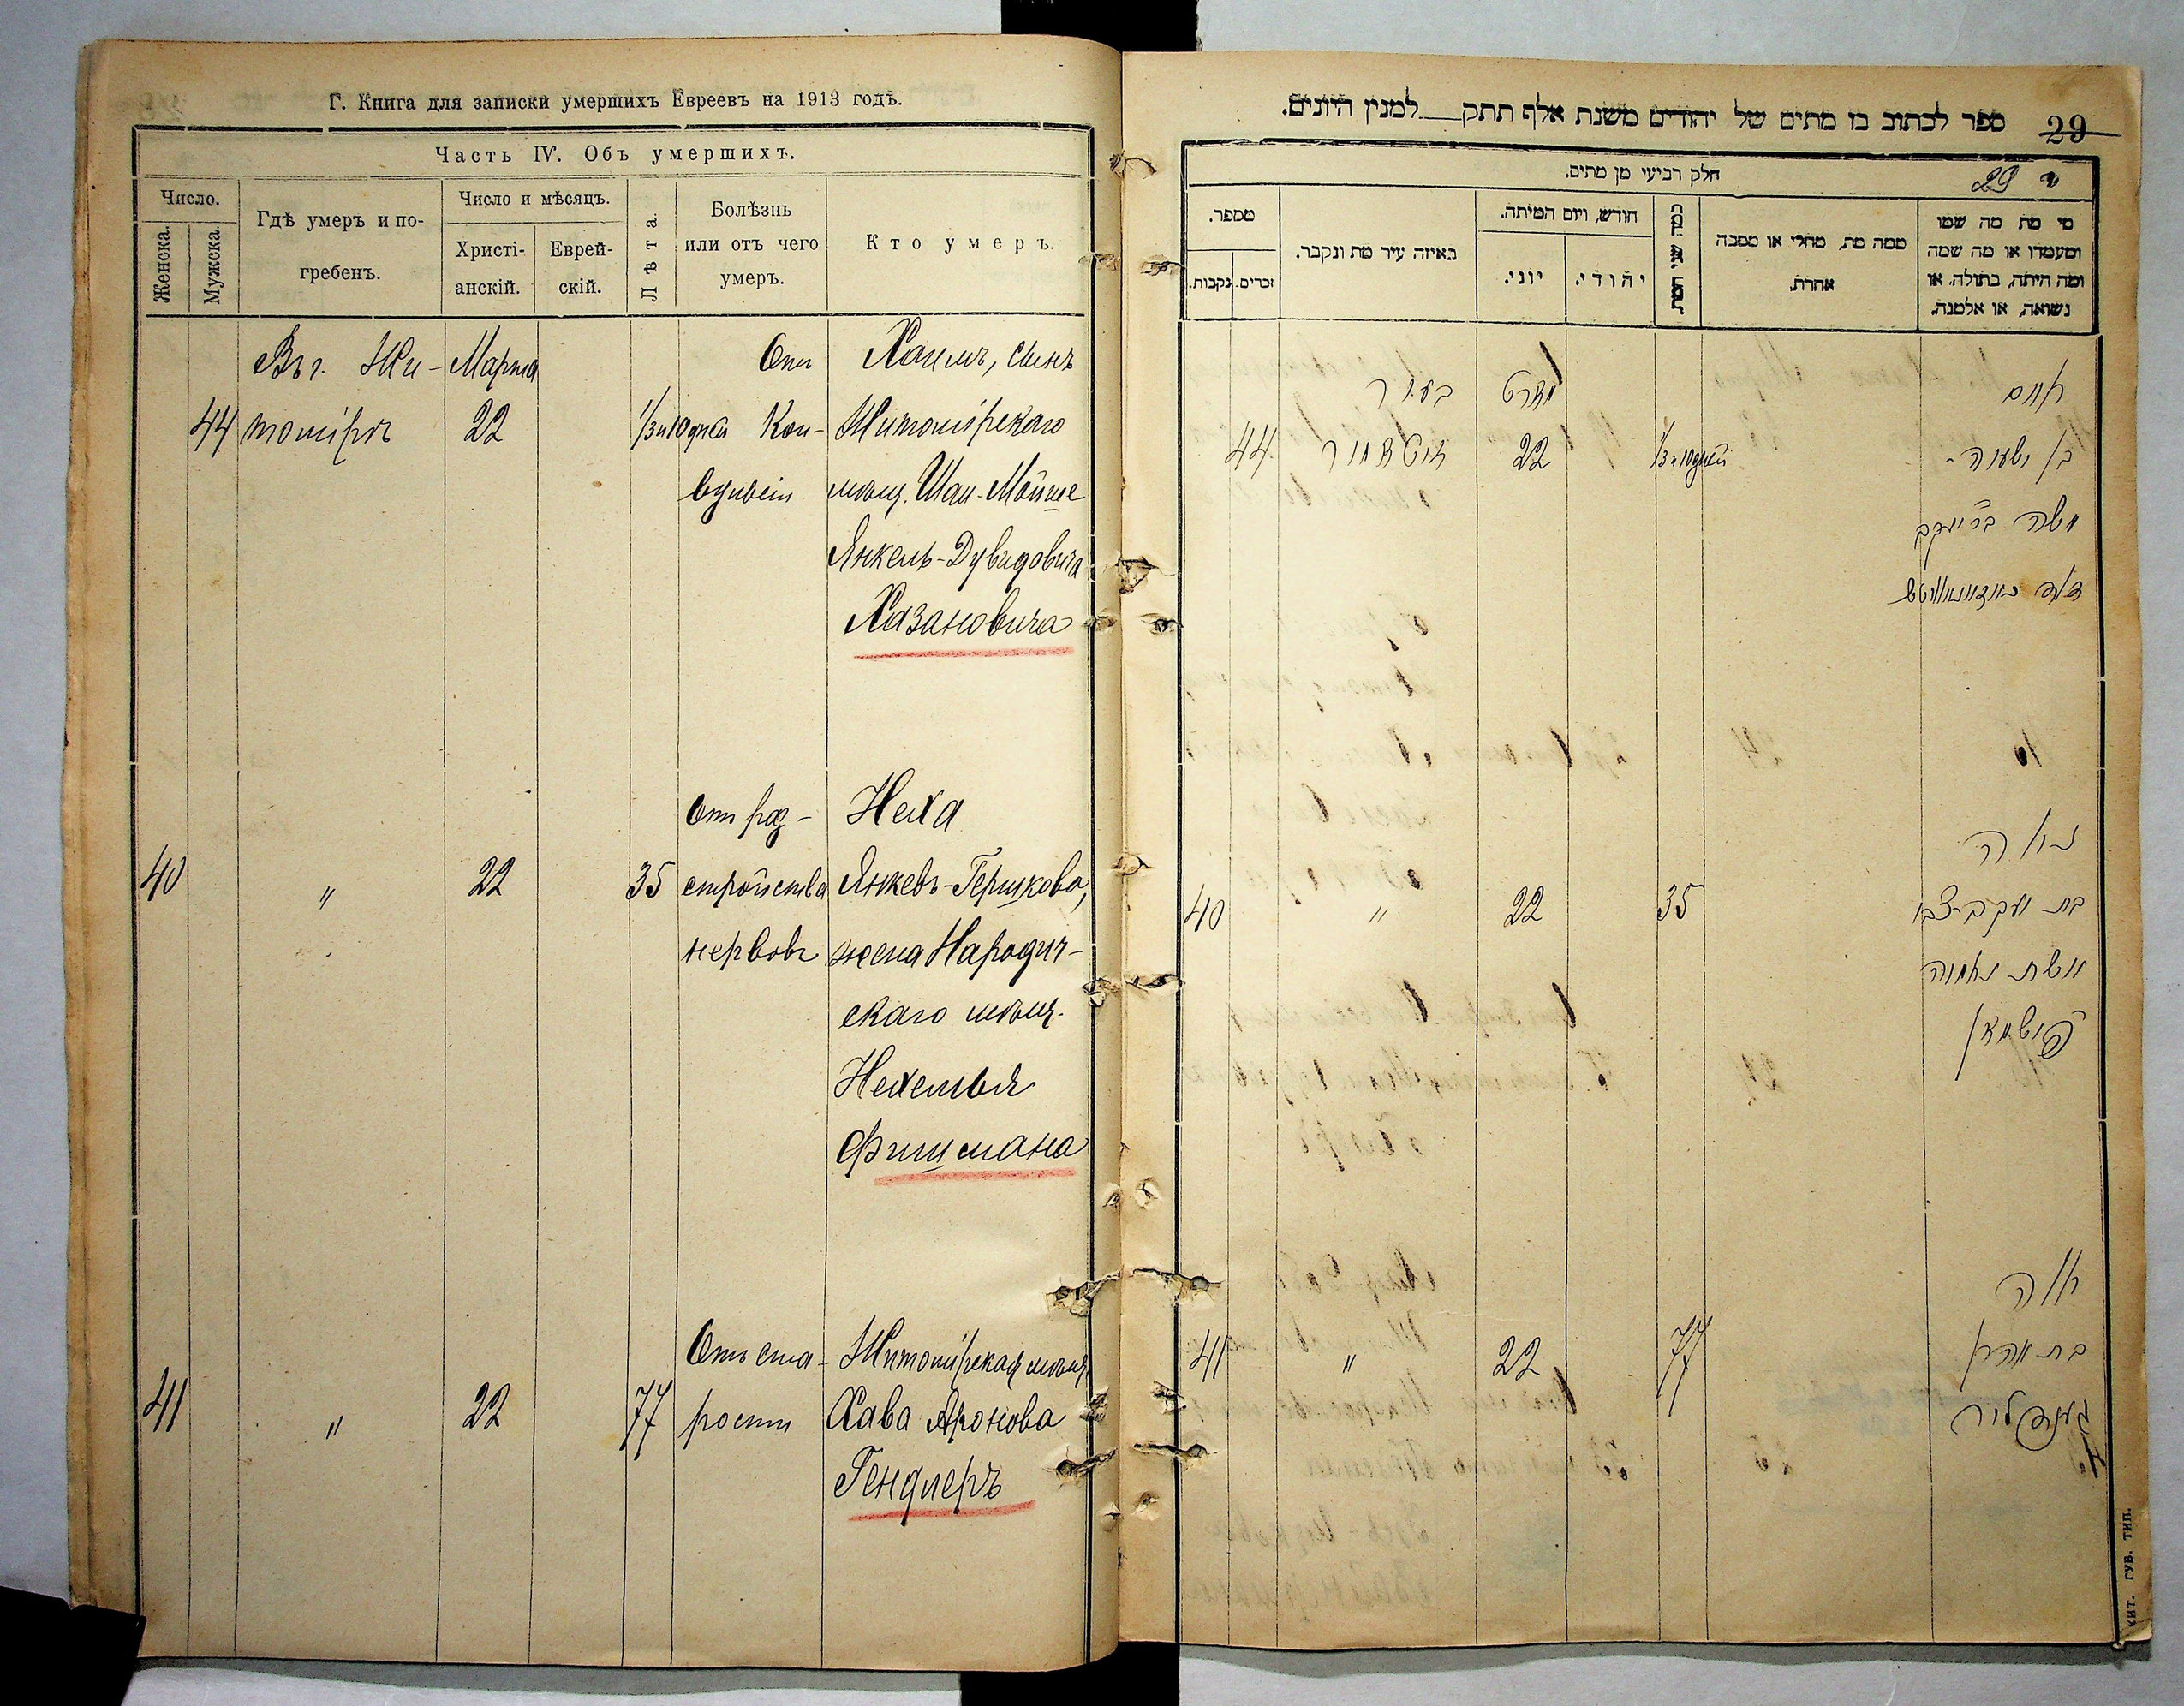 Г. Книга для записки умершихъ Евреевъ на 1913 годъ.
Часть IV. Объ умершихъ.
Число.
Женска.
Мужска.
Гдѣ умеръ и по-
гребенъ.
Число и мѣсяцъ.
Христі-
анскій.
Еврей-
скій.
Лѣта.
Болѣзнь
или отъ чего
умеръ.
Кто умеръ.
Въ г. Жи- Марта Отъ Хаимъ, сынъ
44 томірѣ 22 1/3 и 10 дней Кон- Житомірскаго
вульсіи мѣщ. Шаи-Мойше
Янкель-Дувидовича
Хазановича
Отъ раз- Неха
40 " 22 35 стройства Янкевъ-Гершкова,
нервовъ жена Народич-
скаго мѣщ.
Нехемья
Фишмана
Отъ ста- Житомірская мѣщ.
41 " 22 77 рости Хава Аронова
Гендлеръ
ספר לכתוב בו מתים של יהודים משנת אלף תתק למנין היונים.
29
חלק רביעי מן מתים.
29
מספר.
נקבות.
זכרים.
באיזה עיר מת ונקבר.
חודש, ויום המיתה.
יוני.
יהודי.
כמה שני המת
ממה מת, מחלי או מסבה
אחרת.
מי מת מה שמו
ומעמדו או מה שמה
ומה היתה, בתולה, או
נשואה, או אלמנה.
בעיר מארט חיים
44 זיטאמיר 22 1/3 и 10 дней בן ישעיה-
משה ב"ר יעקב
דוד
נחה
40 " 22 35 בת יעקב צבי
אשת נחמיה
פישמאן
חוה
41 " 22 77 בת אהרן
הענדליר
ЖИТ. ГУБ. ТИП.